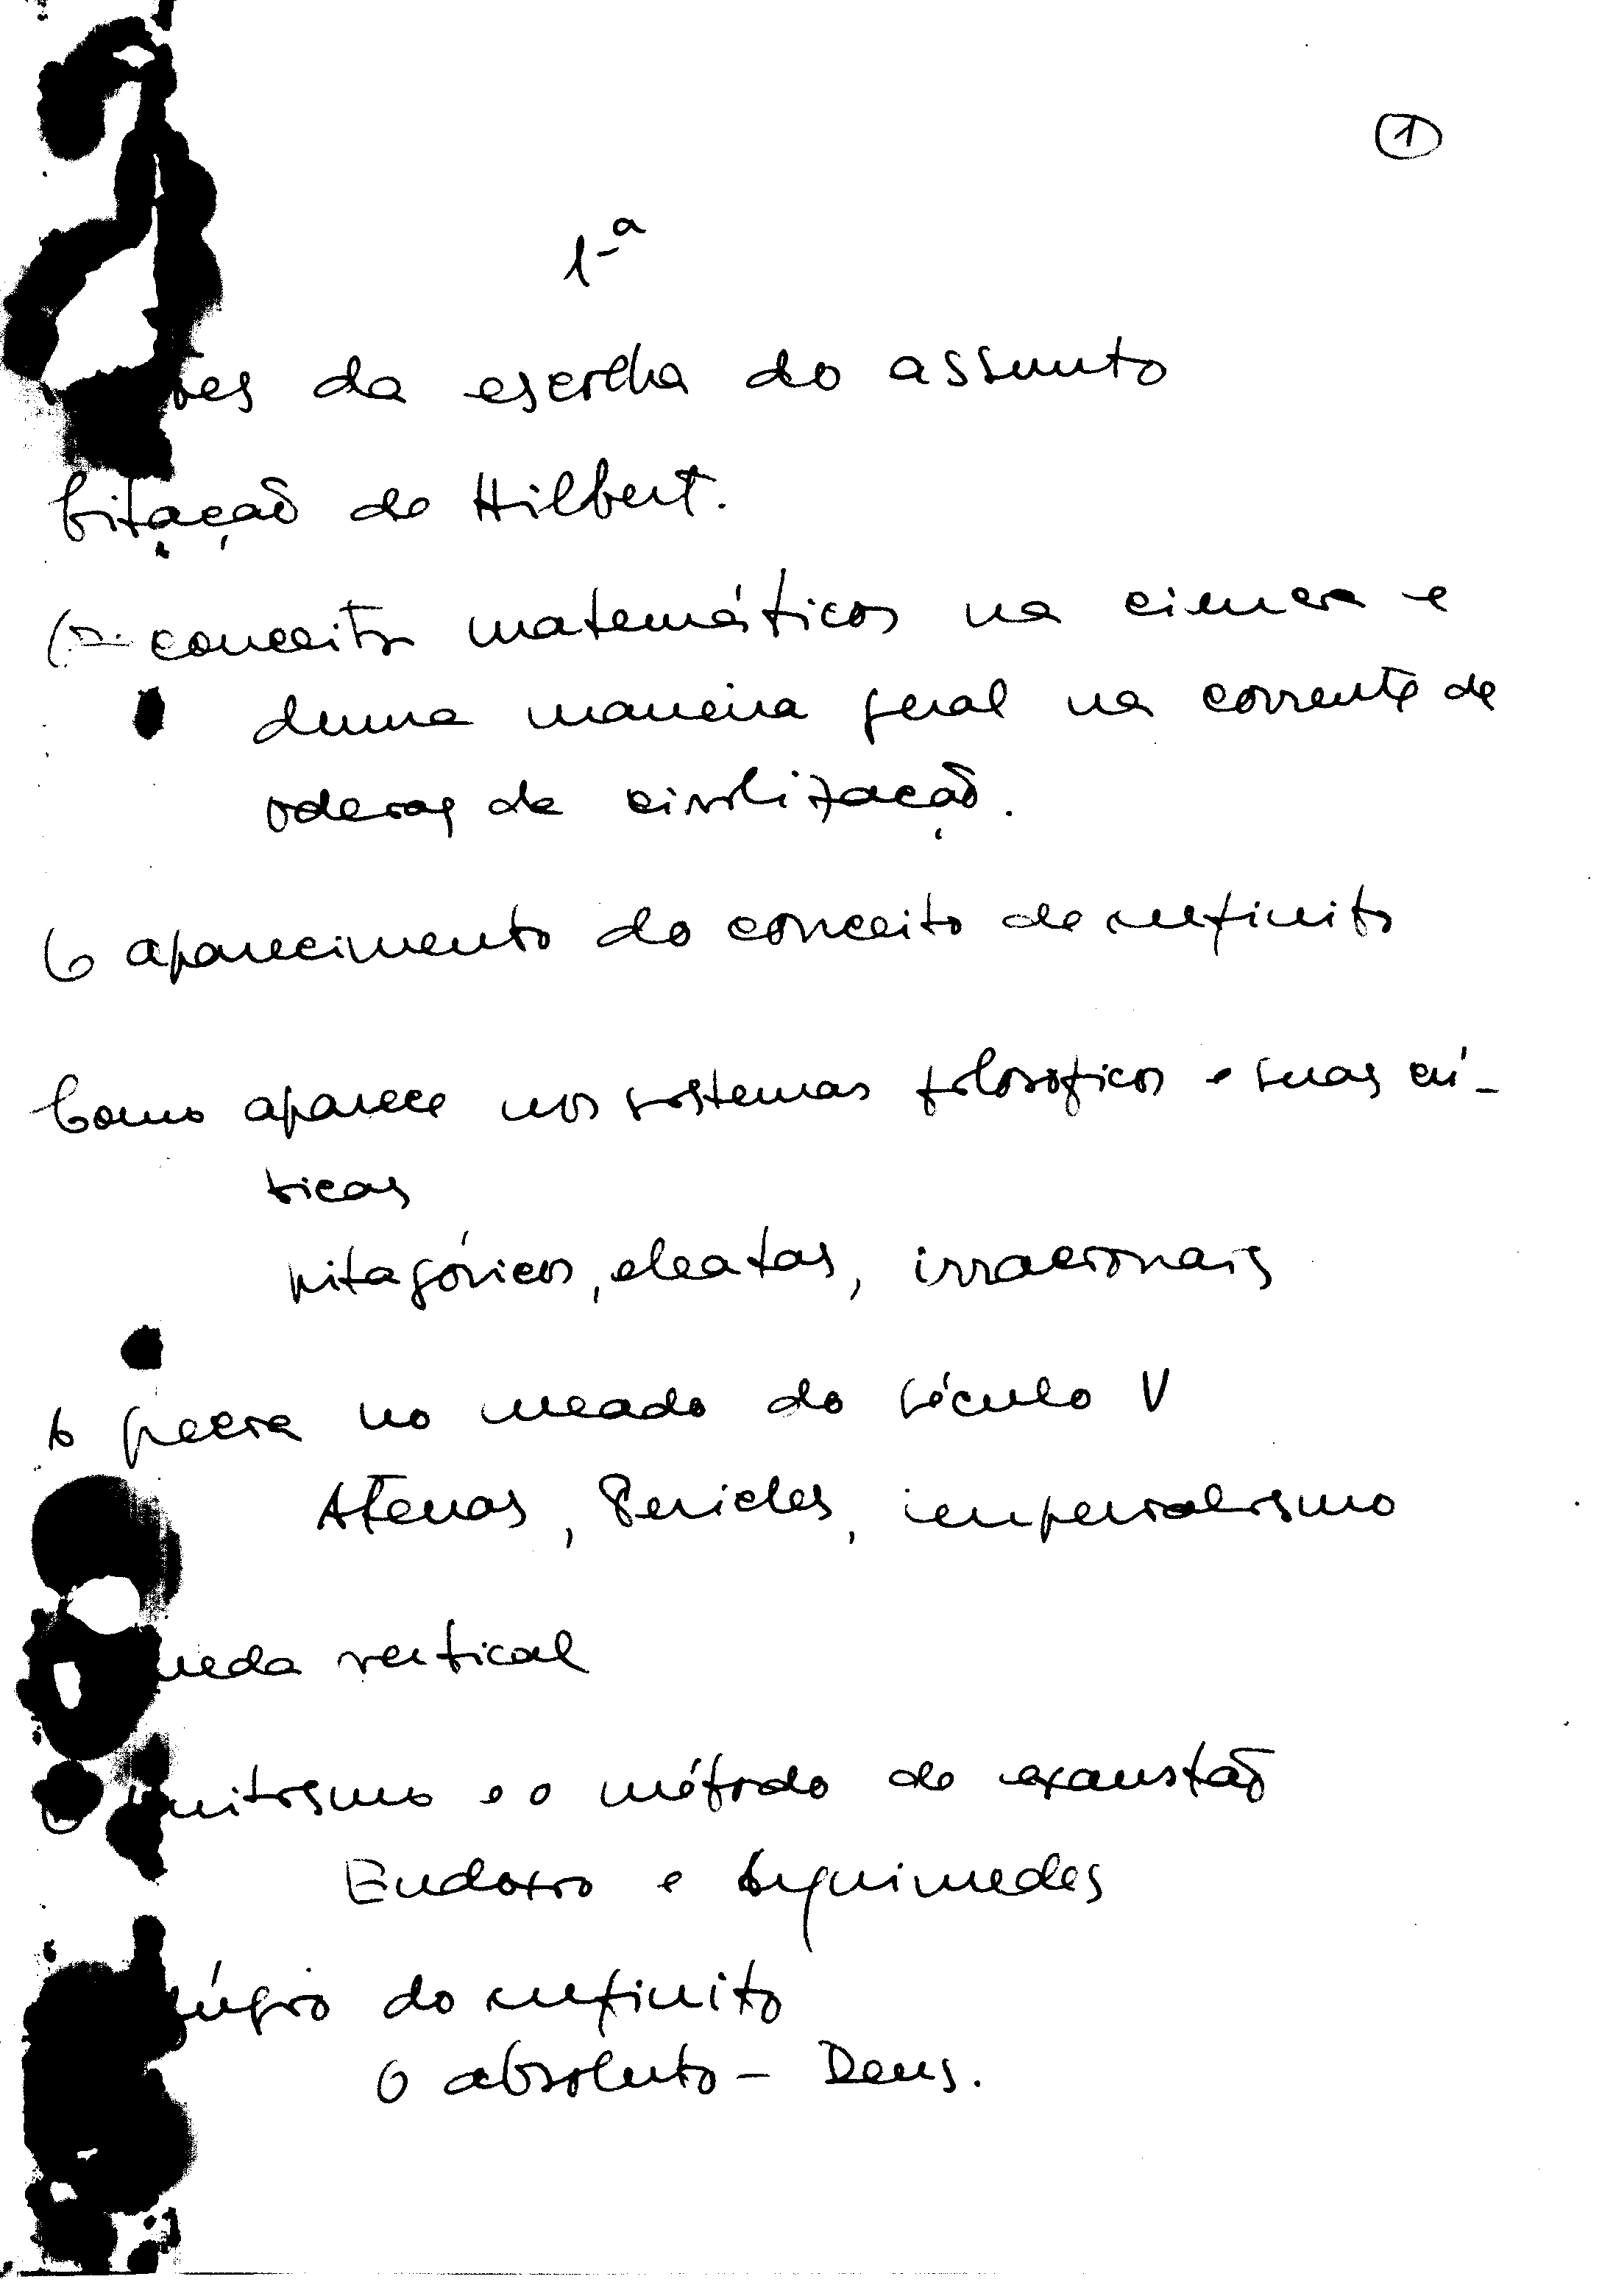 1
1-ª
ões da escolha do assunto
Citação de Hilbert.
conceitos matemáticos na ciencia e
duma maneira geral na corrente de
ideias de civilização.
O aparecimento do conceito de infinito
Como aparece nos sistemas filosoficos e suas crí-
ticas
pitagóricos, eleatas, irracionais
A grecia no meado do século V
Atenas, Pericles, imperialismo
ueda vertical
nitismo e o método de exaustão
Eudoxo e Arquimedes
úgio do infinito
O absoluto - Deus.